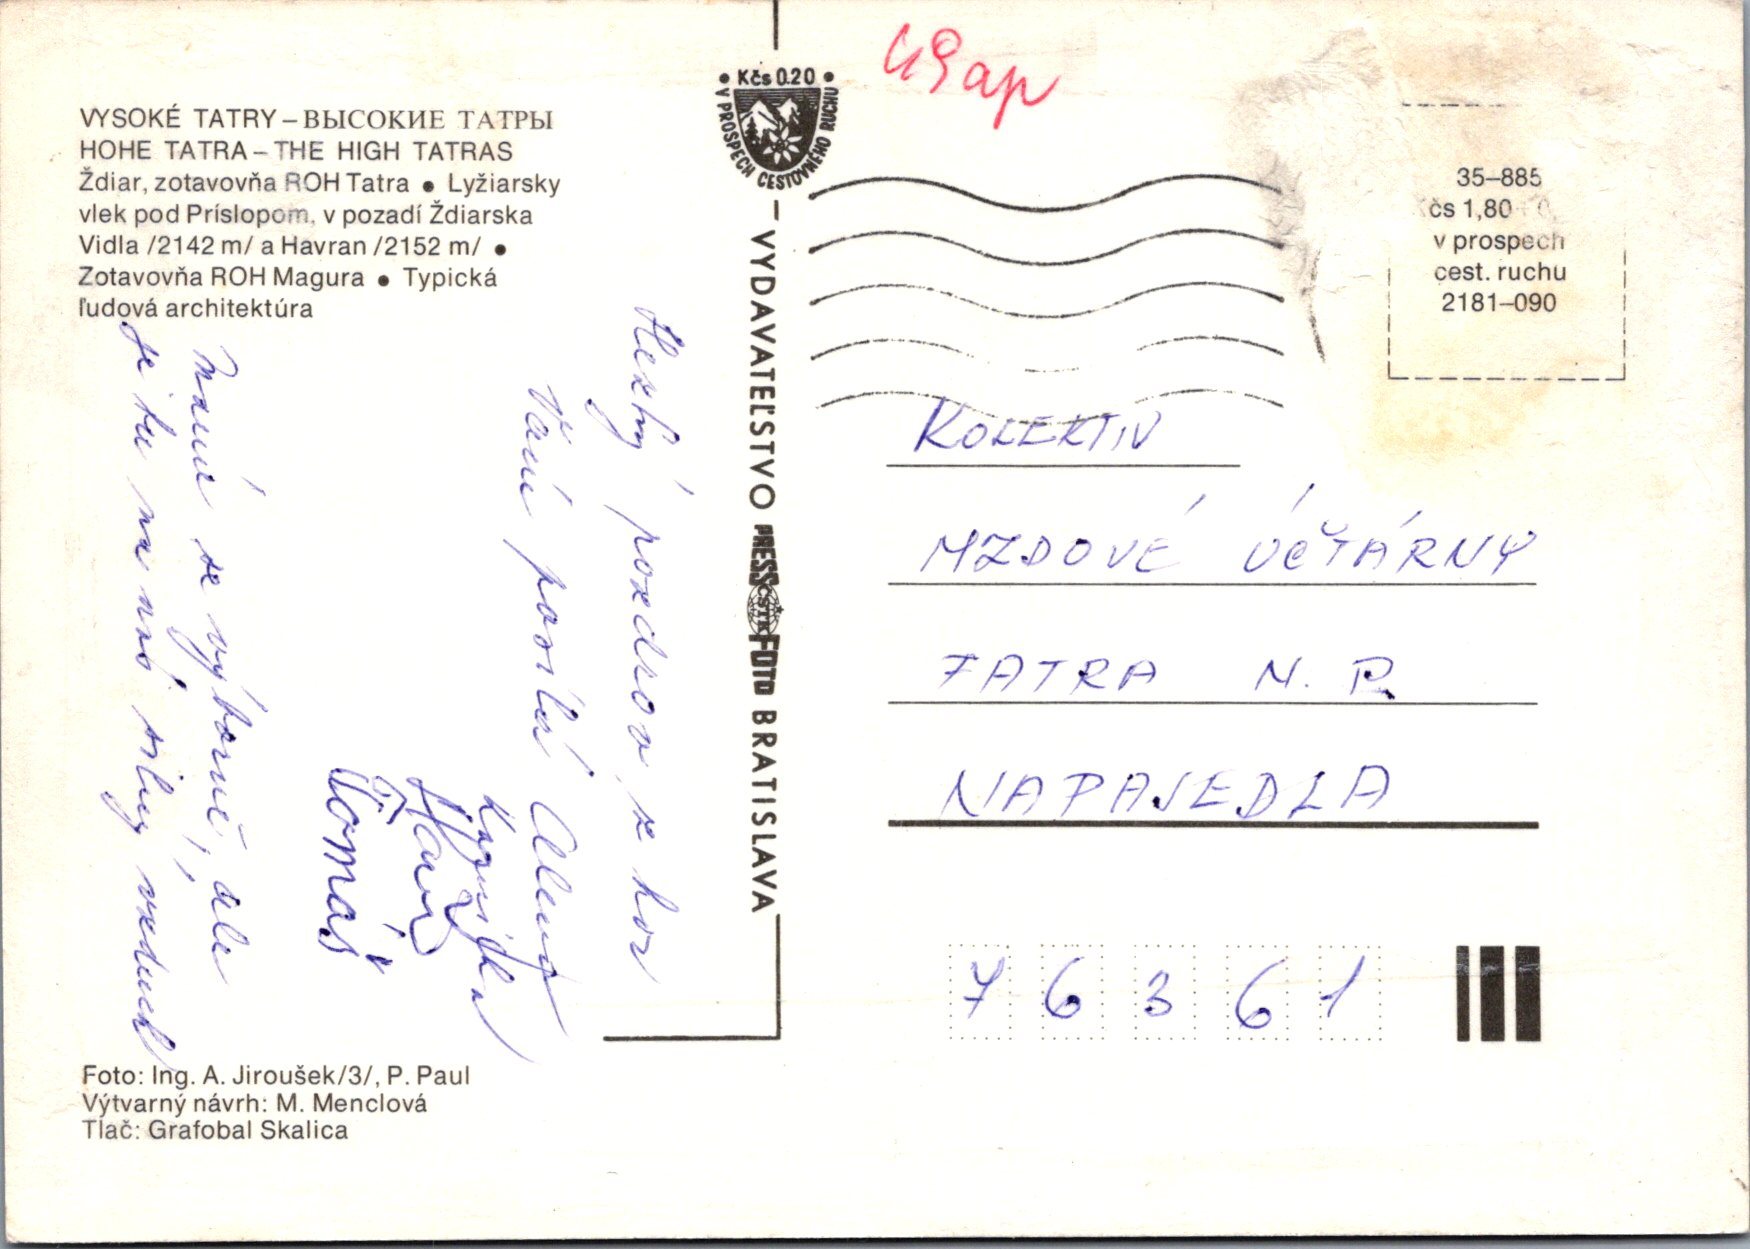 VYSOKÉ TATRY – ВЫСОКИЕ ТАТРЫ
HOHE TATRA – THE HIGH TATRAS
Ždiar, zotavovňa ROH Tatra ● Lyžiarsky
vlek pod Príslopom, v pozadí Ždiarska
Vidla /2142 m/ a Havran /2152 m/ ●
Zotavovňa ROH Magura ● Typická
ľudová architektúra
Hezký pozdrav z hor
Vám posílá Alena
Tomáš
Máme se výborně, ale
je tu na nás silný vzduch
Foto: Ing. A. Jiroušek/3/, P. Paul
Výtvarný návrh: M. Menclová
Tlač: Grafobal Skalica
• Kčs 0.20 •
V PROSPECH CESTOVNÉHO RUCHU
– VYDAVATEĽSTVO PRESSFOTO BRATISLAVA
ČSTK
35–885
čs 1,80
v prospech
cest. ruchu
2181–090
KOLEKTIV
MZDOVÉ ÚČTÁRNY
TATRA N. P.
NAPAJEDLA
76361